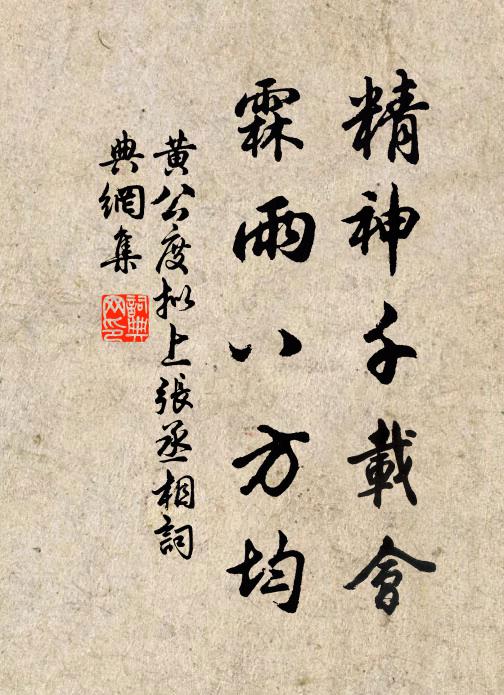 精神千載會
霖雨八方均
黃公度擬上張丞相詞
典網集
詞典網印